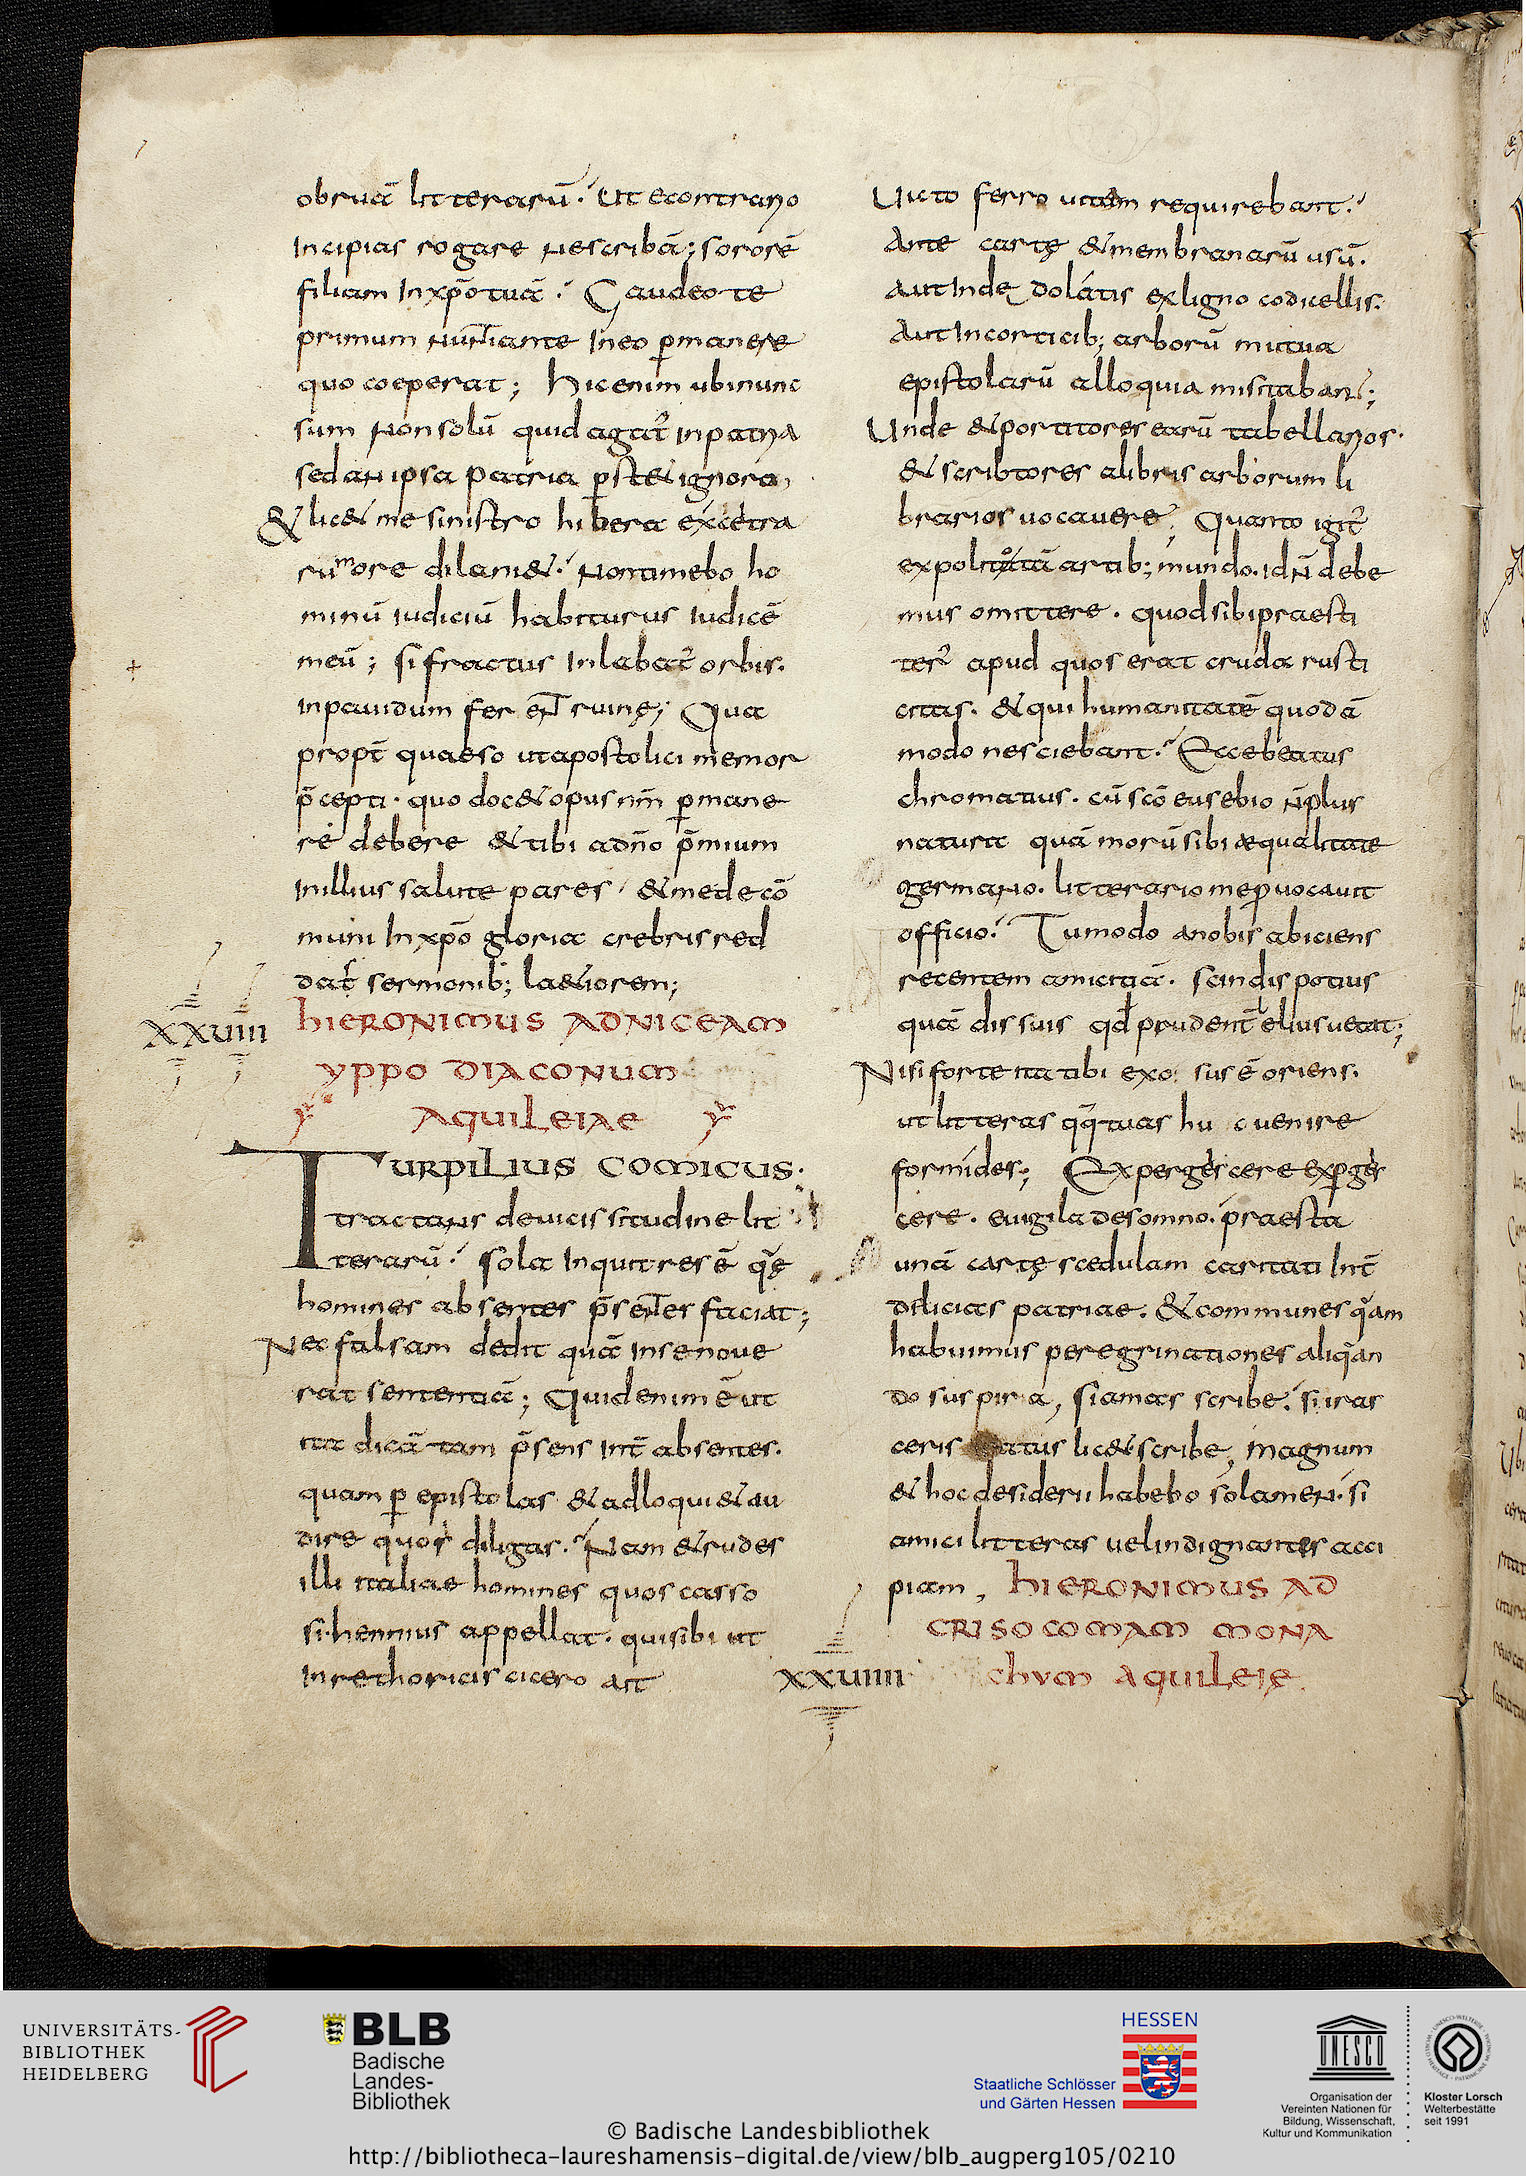 obruā litterarū. Ut econtrario
Incipias rogare Nescribā; sororē
filiam Inxp̄otuā. Gaudeo te
primum nuntiante Ineo p̱manere
quo coeperat; Hicenim ubinunc
sum Nonsolū quid agat᷑ inpatria
sedan ipsa patria p̱stet ignoro,
& lic& me sinistro hibera excetra
rumore dilani&. Nontimebo ho
minū iudiciū habiturus iudicē
meū; si fractus Inlabat᷑ orbis.
inpauidum ferent ruinę; Qua
propt̄ quaeso utapostolici memor
p̄cepti. quo doc& opus nr̄m p̱mane
re debere & tibi adn̄o p̄mium
Inillius salute pares, & mede cō
muni Inxp̄o gloria crebris red
dat᷑ sermonib; la&iorem;
XXVIII
HIERONIMUS AD NICEAM
YPPO DIACONUM
AQUILEIAE
TURPILIUS COMICUS.
tractans deuicissitudine lit
terarū. sola Inquit res ē q̄ę
homines absentes p̄sentes faciat;
Nec falsam dedit quā Insenoue
rat sententiā; Quidenim ē ut
ita dicā tam p̄sens Int̄ absentes.
quam p̱ epistolas & adloqui & au
dire quos diligas. Nam & rudes
illi italiae homines quos casso
si.hennius appellat. quisibi ut
Inrethoricis cicero ait
Uicto ferro uitam requirebant.
Ante cartę & membranarū usū.
Aut Inde dolatis exligno codicellis.
Aut Incorticib; arborū mutua
epistolarū alloquia missitabant;
Unde & portitores earū tabellarios.
& scribtores alibris arborum li
brarios uocauere, Quanto igit᷑
expolito tā artib; mundo. idn̄ debe
mus omittere. quodsibipraesti
ter᷑ apud quos erat cruda rusti
citas. & qui humanitatē quodā
modo nesciebant. Ecce beatus
chromatius. cū sc̄o eusebio n̄ plus
natura quā morū sibi aequalitate
germano. litterario mep̱uocauit
officio. Tumodo anobis abiciens
recentem amicitiā. scindis potius
quā dissuis qđ prudent̄ elius uetat;
Nisi forte ita tibi exosus ē oriens.
ut litteras q̄q̄ tuas huc uenire
formides; Expergescere exp̱ges
cere. euigila desomno. praesta
unā cartę scedulam caritati Int̄
delicias patriae. & communes q̄am
habuimus peregrinationes aliq̄an
do suspira, si amas scribe. si iras
ceris iratus lic& scribe, magnum
& hoc desiderii habebo solamen. si
amici litteras uel indignantis acci
piam, HIERONIMUS AD
CRISOCOMAM MONA
XXVIIII
CHUM AQUILEIĘ.
UNIVERSITÄTS-
BIBLIOTHEK
HEIDELBERG
BLB
Badische
Landes-
Bibliothek
HESSEN
Staatliche Schlösser
und Gärten Hessen
UNESCO
Organisation der
Vereinten Nationen für
Bildung, Wissenschaft,
Kultur und Kommunikation
Kloster Lorsch
Welterbestätte
seit 1991
© Badische Landesbibliothek
http://bibliotheca-laureshamensis-digital.de/view/blb_augperg105/0210